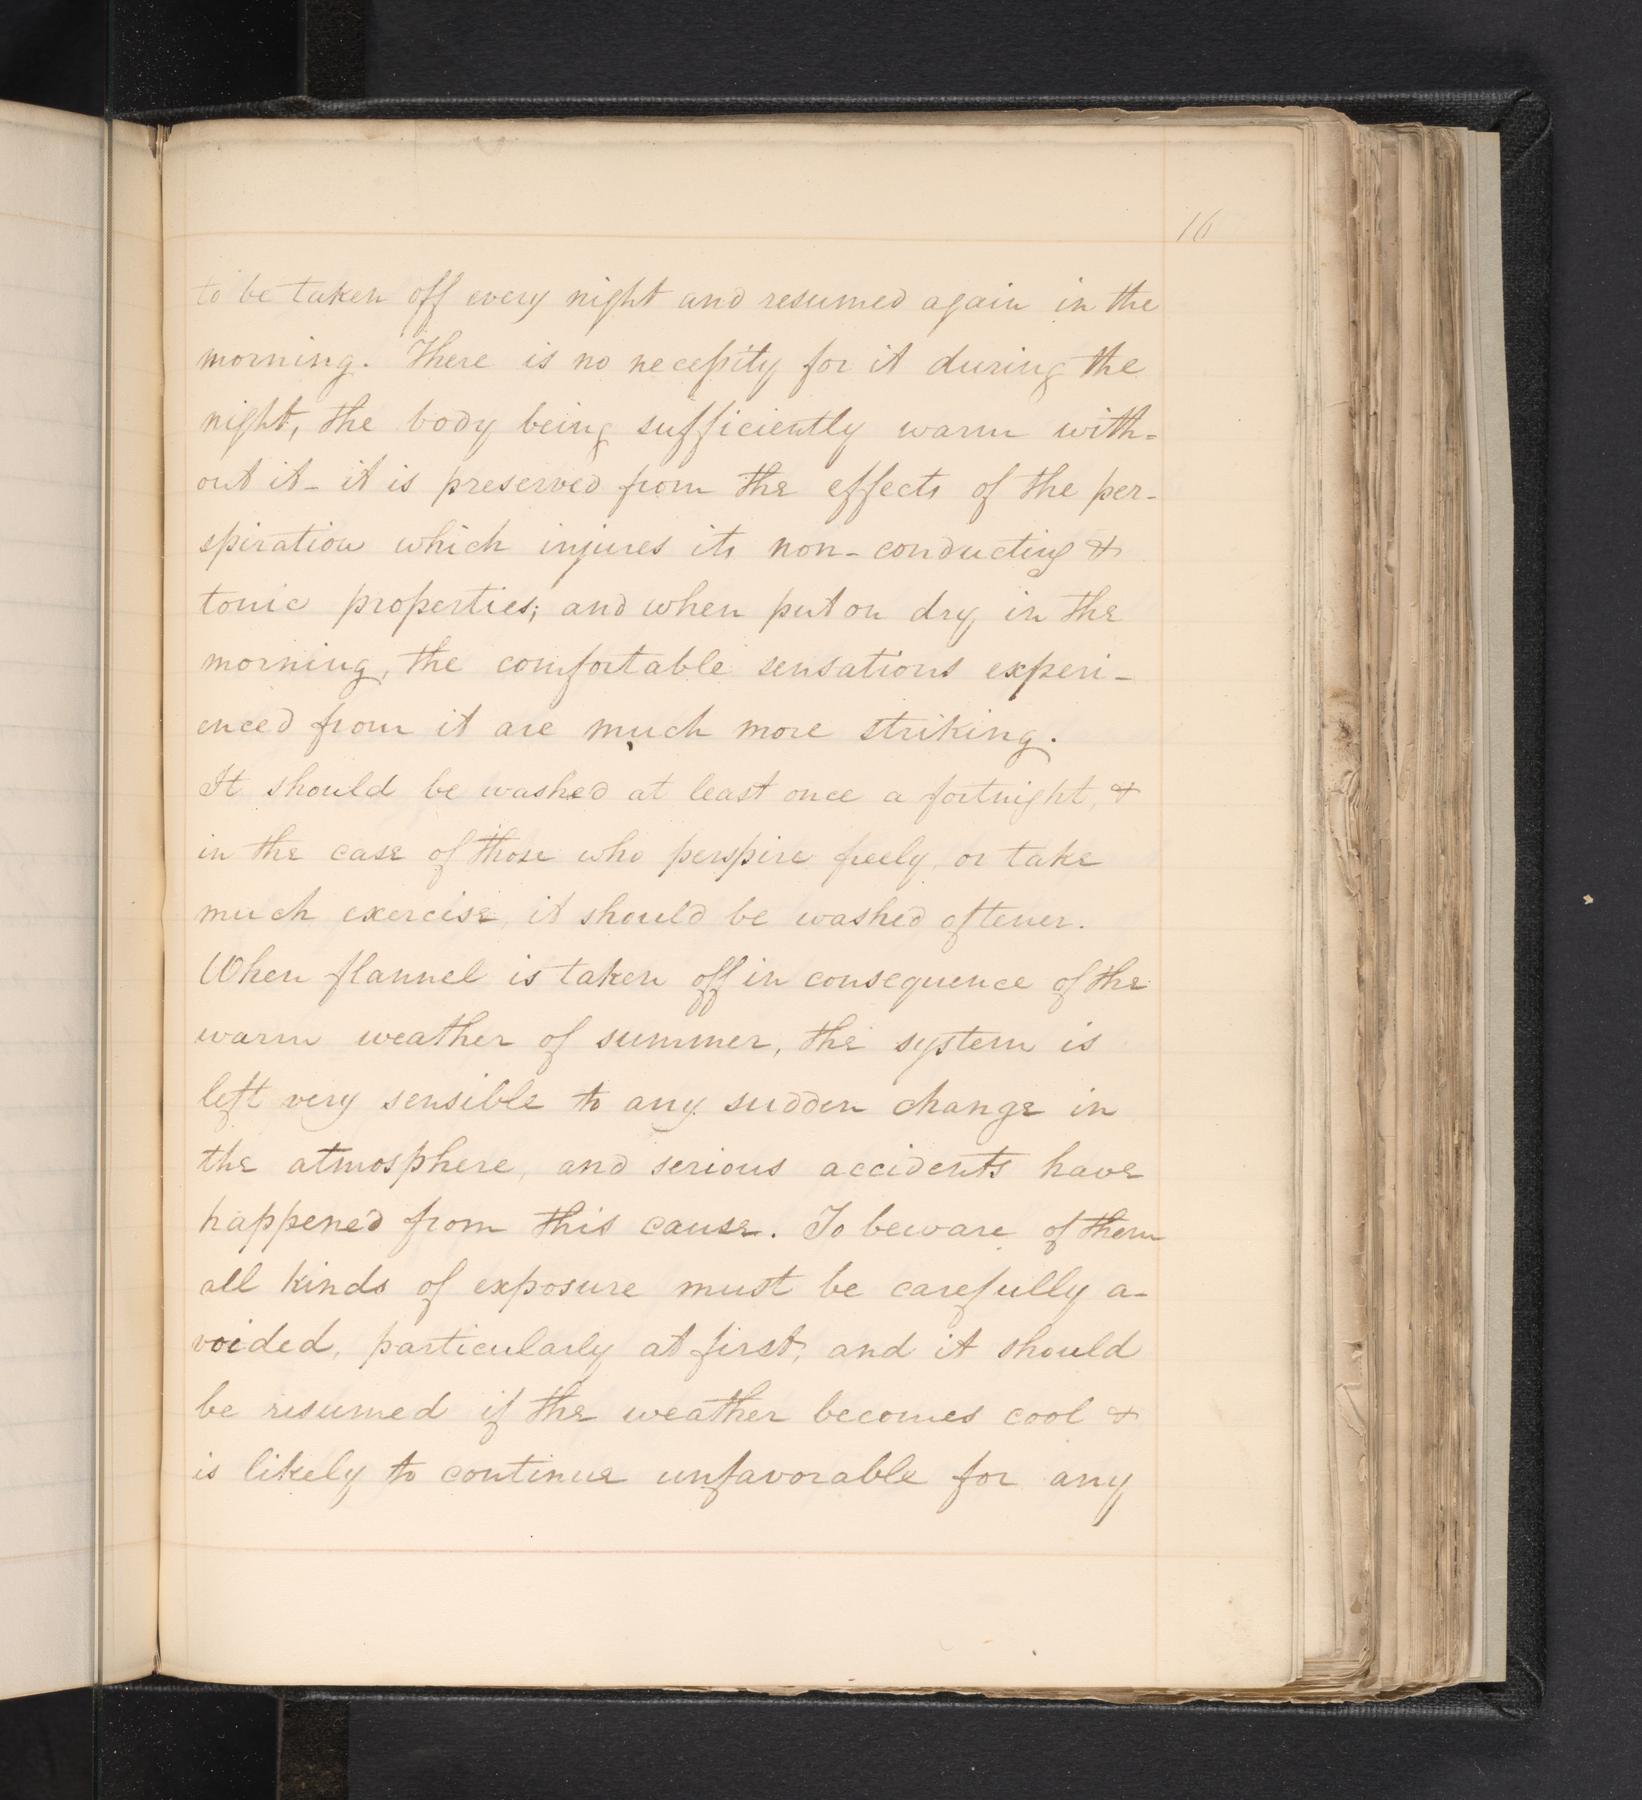 16
to be taken off every night and resumed again in the
morning. There is no necessity for it during the
night, the body being sufficiently warm with-
out it - it is preserved from the effects of the per-
spiration which injures its non-conducting &
tonic properties; and when put on dry in the
morning, the comfortable sensations experi-
enced from it are much more striking.
It should be washed at least once a fortnight, &
in the case of those who perspire freely, or take
much exercise, it should be washed oftener.
When flannel is taken off in consequence of the
warm weather of summer, the system is
left very sensible to any sudden change in
the atmosphere, and serious accidents have
happened from this cause. To beware of them
all kinds of exposure must be carefully a-
voided, particularly at first, and it should
be resumed if the weather becomes cool &
is likely to continue unfavorable for any